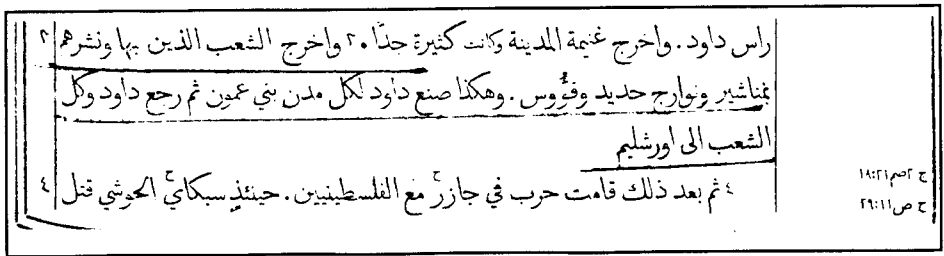 راس داود. واخرج غنيمة المدينة وكانت كثيرة جدًّا. ٣ واخرج الشعب الذين بها ونشرهم ٣
بمناشير ونوارج حديد وفُؤُوس. وهكذا صنع داود لكل مدن بني عمون ثم رجع داود وكل
الشعب الى اورشليم
٤ ثم بعد ذلك قامت حرب في جازرَ ح مع الفلسطينيين. حينئذٍ سبكاي ح الحوشي قتل ٤
ح ٢صم ١٨:٢١
خ ص ٢٩:١١